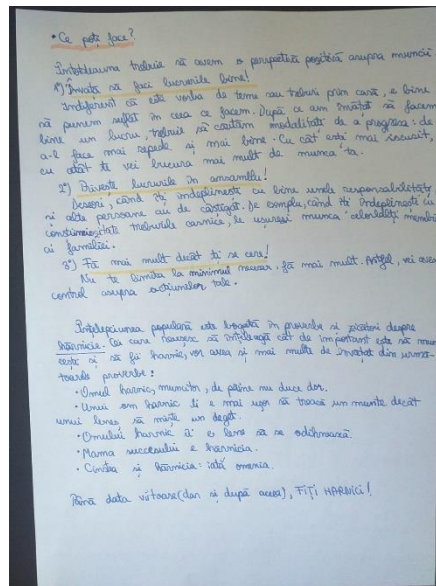 • Ce poți face?
Întotdeauna trebuie să avem o perspectivă pozitivă asupra muncii
1°) Învață să faci lucrurile bine!
Indiferent că este vorba de teme sau treburi prin casă, e bine
să punem suflet în ceea ce facem. După ce am învățat să facem
bine un lucru, trebuie să căutăm modalități de a progresa: de
a-l face mai repede și mai bine. Cu cât ești mai iscusit,
cu atât te vei bucura mai mult de munca ta.
2°) Privește lucrurile în ansamblu!
Deseori, când îți îndeplinești cu bine unele responsabilități,
și alte persoane au de câștigat. De exemplu, când îți îndeplinești cu
conștiinciozitate treburile casnice, le ușurezi munca celorlalți membri
ai familiei.
3°) Fă mai mult decât ți se cere!
Nu te limita la minimul necesar. Fă mai mult. Astfel, vei avea
control asupra acțiunilor tale.
Înțelepciunea populară este bogată în proverbe și zicători despre
hărnicie. Cei care doresc să înțeleagă cât de important este să
cești și să fii harnic, vor avea și mai multe de învățat din urmă-
toarele proverbe:
• Omul harnic, muncitor, de pâine nu duce dor.
• Unui om harnic îi e mai ușor să treacă un munte decât
unui leneș să miște un deget.
• Omului harnic îi e lene să se odihnească.
• Mama succesului e hărnicia.
• Cinstea și hărnicia: iată omenia.
Până data viitoare (dar și după aceea), FIȚI HARNICI!